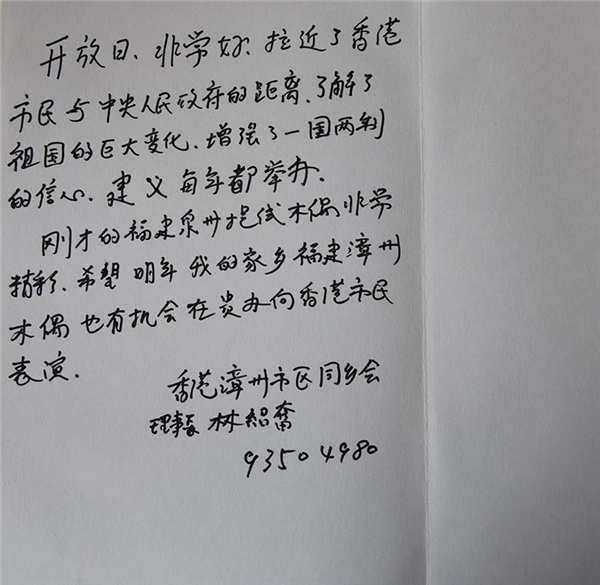 开放日、非常好、拉近了香港
市民与中央人民政府的距离、了解了
祖国的巨大变化、增强了一国两制
的信心、建义每年都举办、
刚才的福建泉州提线木偶非常
精彩、希望明年我的家乡福建漳州
木偶也有机会在贵办向香港市民
表演.
香港漳州市区同乡会
理事长 林绍奮
93504980